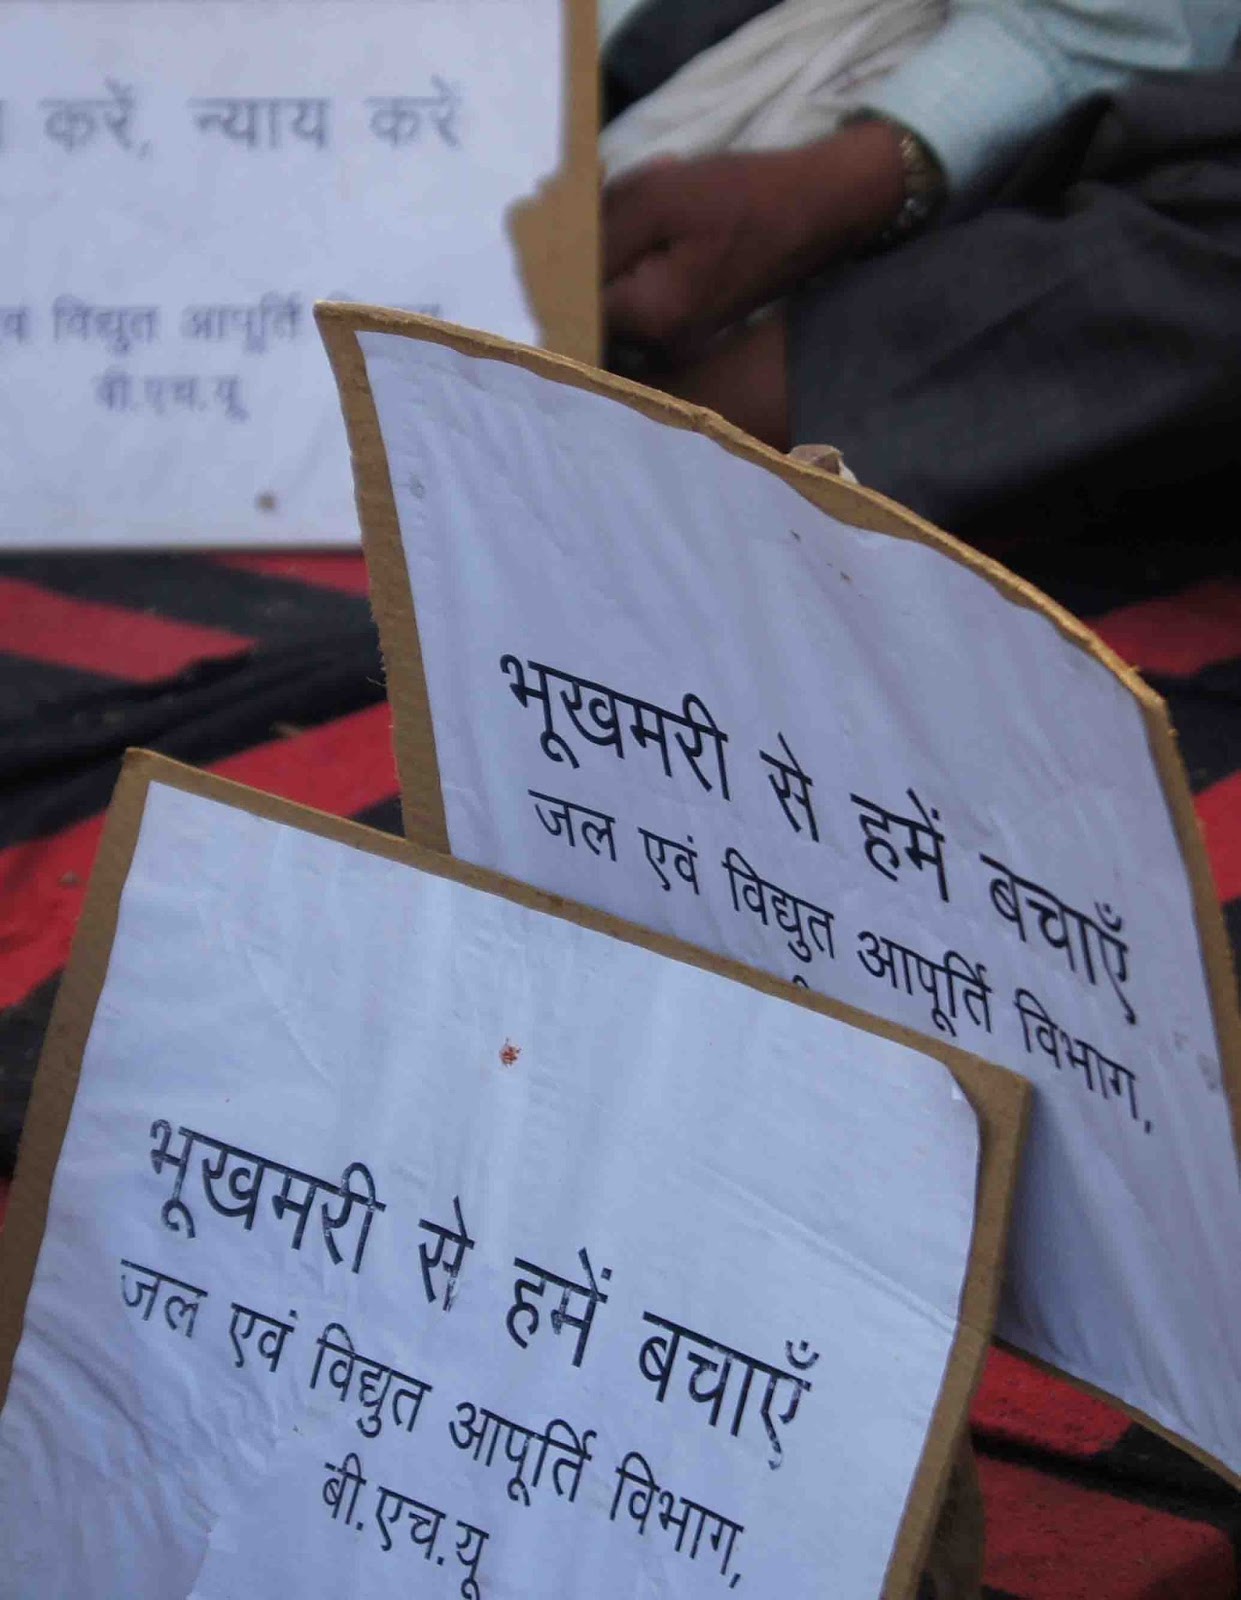 करें, न्याय करें
एवं विद्युत आपूर्ति
बी.एच.यू
भूखमरी से हमें बचाएँ
जल एवं विद्युत आपूर्ति विभाग,
भूखमरी से हमें बचाएँ
जल एवं विद्युत आपूर्ति विभाग,
बी.एच.यू